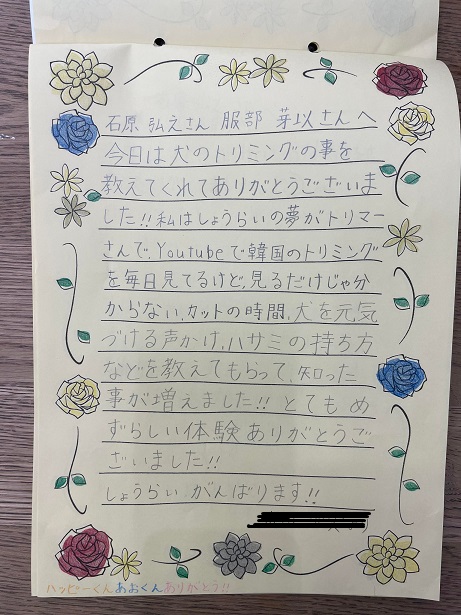 石原 弘えさん 服部 芽以さんへ
今日は犬のトリミングの事を
教えてくれてありがとうございま
した!!私はしょうらいの夢がトリマー
さんで、Youtubeで韓国のトリミング
を毎日見てるけど、見るだけじゃ分
からない、カットの時間、犬を元気
づける声かけ、ハサミの持ち方
などを教えてもらって、知った
事が増えました!!とてもめ
ずらしい体験ありがとうご
ざいました!!
しょうらい がんばります!!
ハッピーくんあおくんありがとう!!